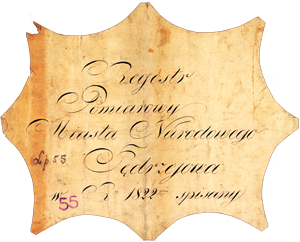 Regestr
Pomiarowy
Miasta Narodowego
Jędrzejowa
Lp 55
w R. 1822 spisany
55